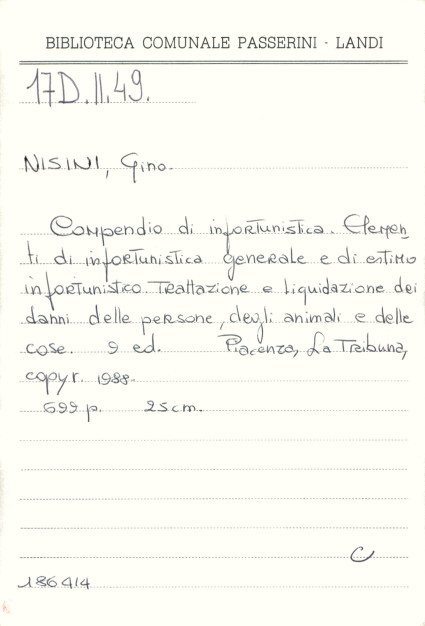 BIBLIOTECA COMUNALE PASSERINI - LANDI
17D.II.49.
NISINI, Gino.
Compendio di infortunistica. Elemen
ti di infortunistica generale e di estimo
infortunistico. Trattazione e liquidazione dei
danni delle persone, degli animali e delle
cose. 9 ed. Piacenza, La Tribuna,
copyr. 1988.
699 p. 25 cm.
C
186414